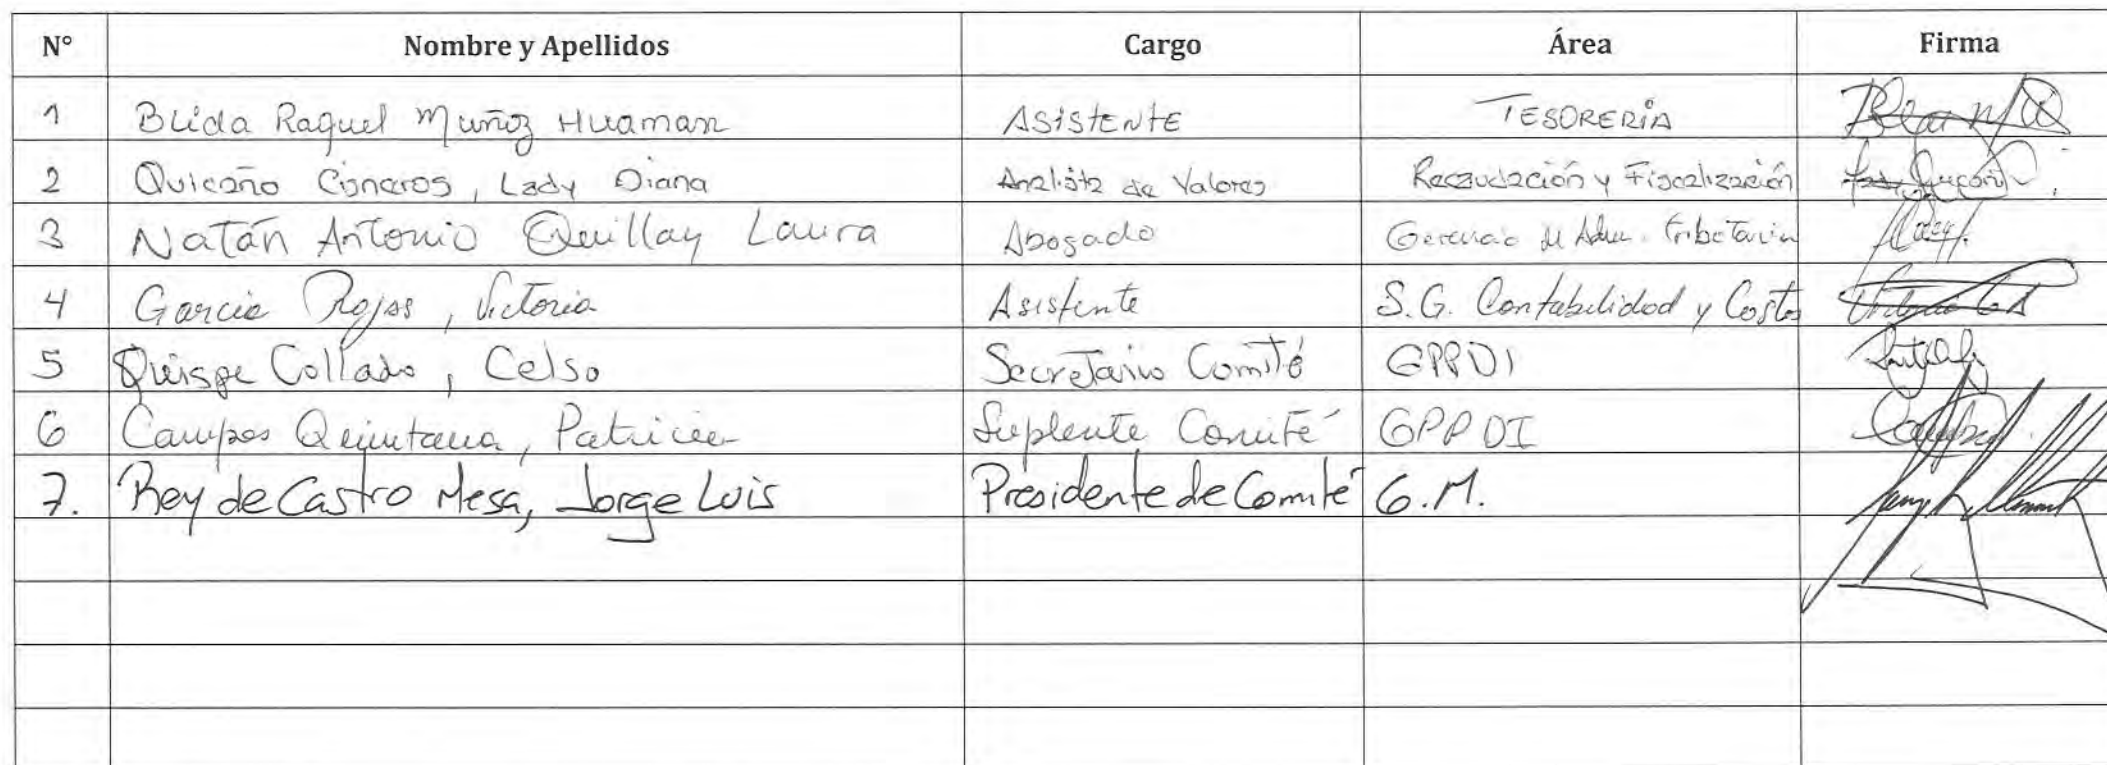 N° Nombre y Apellidos Cargo Área Firma
1 Blida Raquel Muñoz Huaman Asistente TESORERIA
2 Quicaño Cisneros, Lady Diana Analista de Valores Recaudación y Fiscalización
3 Natán Antonio Quillay Laura Abogado Gerencia de Adm. tributaria
4 Garcia Rojas, Victoria Asistente S.G. Contabilidad y Costos
5 Quispe Collado, Celso Secretario Comité GPPDI
6 Campos Quintana, Patricia Suplente Comité GPPDI
7. Rey de Castro Mesa, Jorge Luis Presidente de Comité G.M.